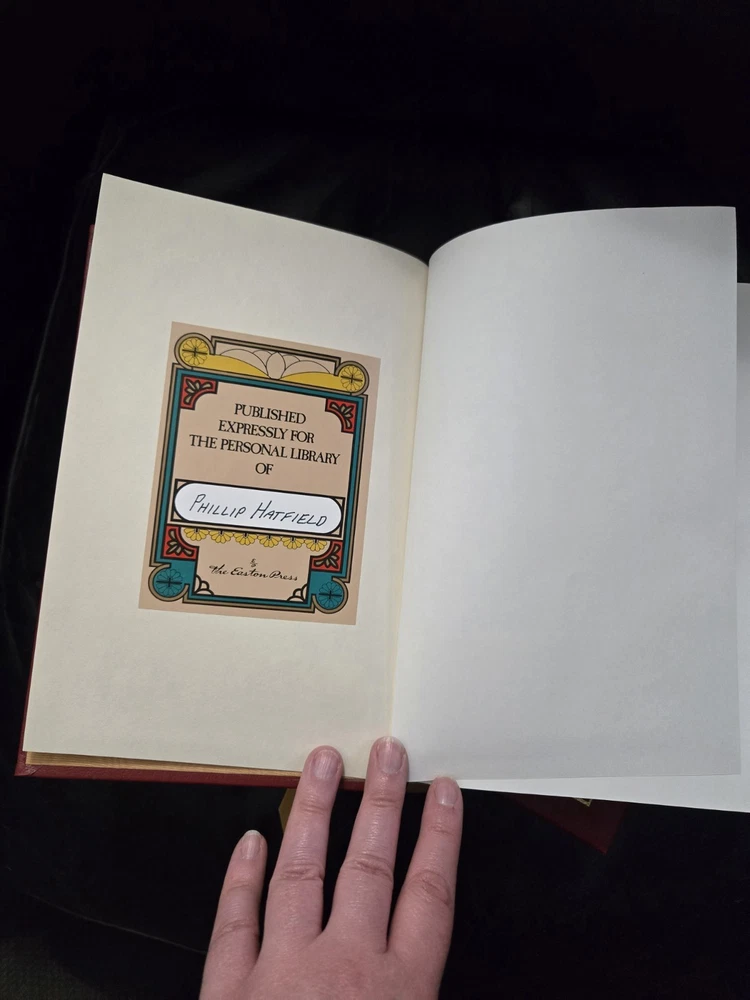 PUBLISHED
EXPRESSLY FOR
THE PERSONAL LIBRARY
OF
PHILLIP HATFIELD
by
The Easton Press